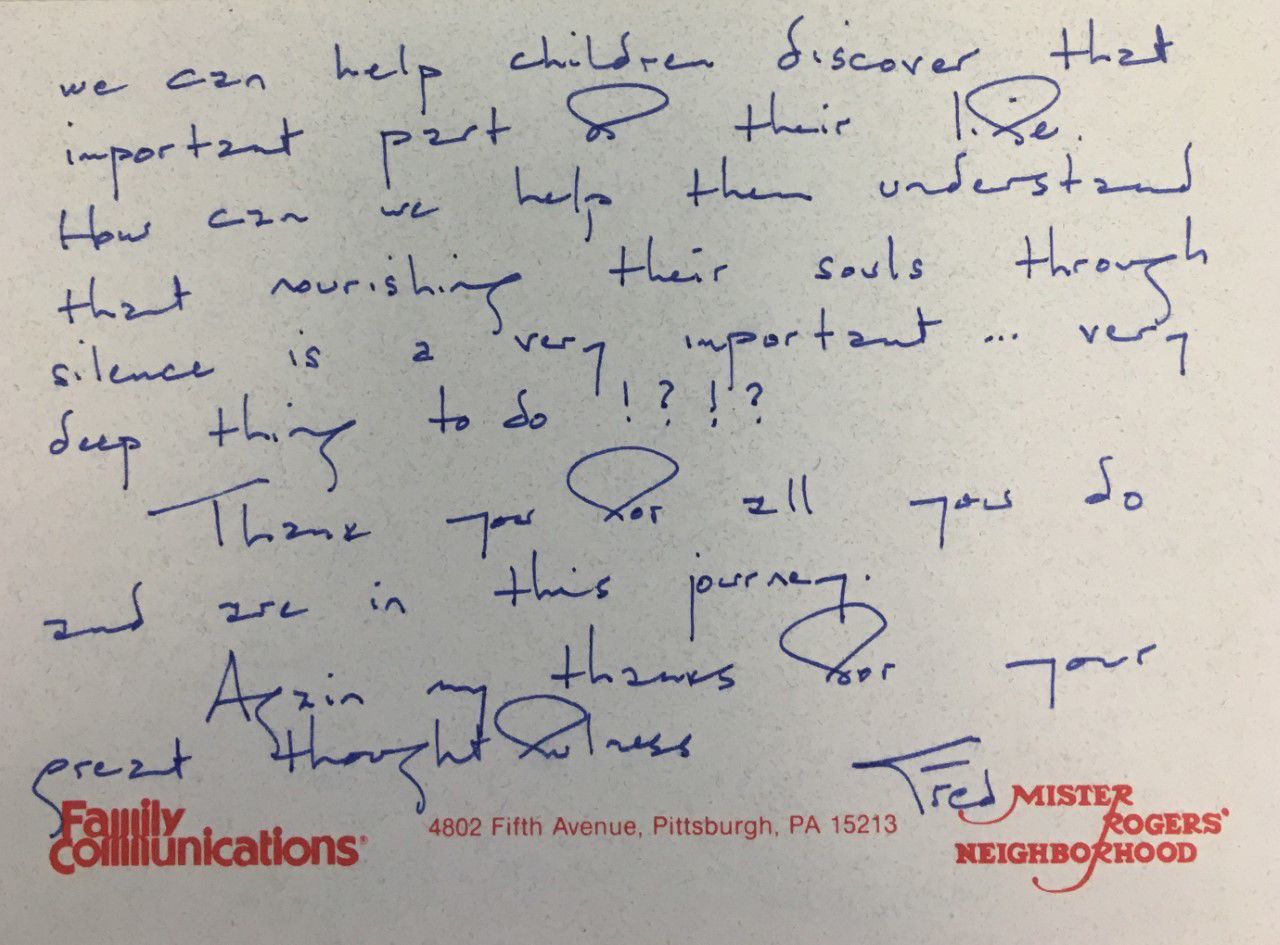 we can help children discover that
important part of their life.
How can we help them understand
that nourishing their souls through
silence is a very important ... very
deep thing to do !?!?
Thank you for all you do
and are in this journey.
Again my thanks for your
great thoughtfulness
Fred
Family Communications®
4802 Fifth Avenue, Pittsburgh, PA 15213
MISTER
ROGERS'
NEIGHBORHOOD